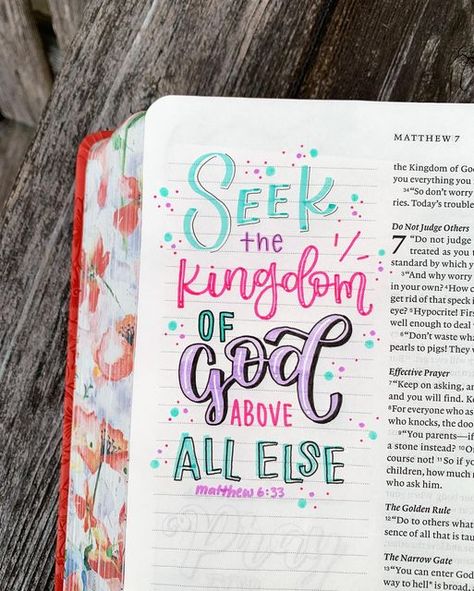 Seek
the
Kingdom
OF
God
ABOVE
ALL ELSE
matthew 6:33
Pray
MATTHEW 7
the Kingdom of God
you everything you
34 "So don't worry
ries. Today's trouble
Do Not Judge Others
7 "Do not judge
treated as you t
standard by which y
3 "And why worry
in your own? 4 How c
get rid of that speck i
eye? 5 Hypocrite! First
well enough to deal
6 "Don't waste what
pearls to pigs! They w
Effective Prayer
7 "Keep on asking, an
and you will find. K
8 For everyone who as
who knocks, the doo
9 "You parents—if
a stone instead? 10 O
course not! 11 So if yo
children, how much
who ask him.
The Golden Rule
12 "Do to others what
sense of all that is tau
The Narrow Gate
13 "You can enter God
way to hell* is broad,